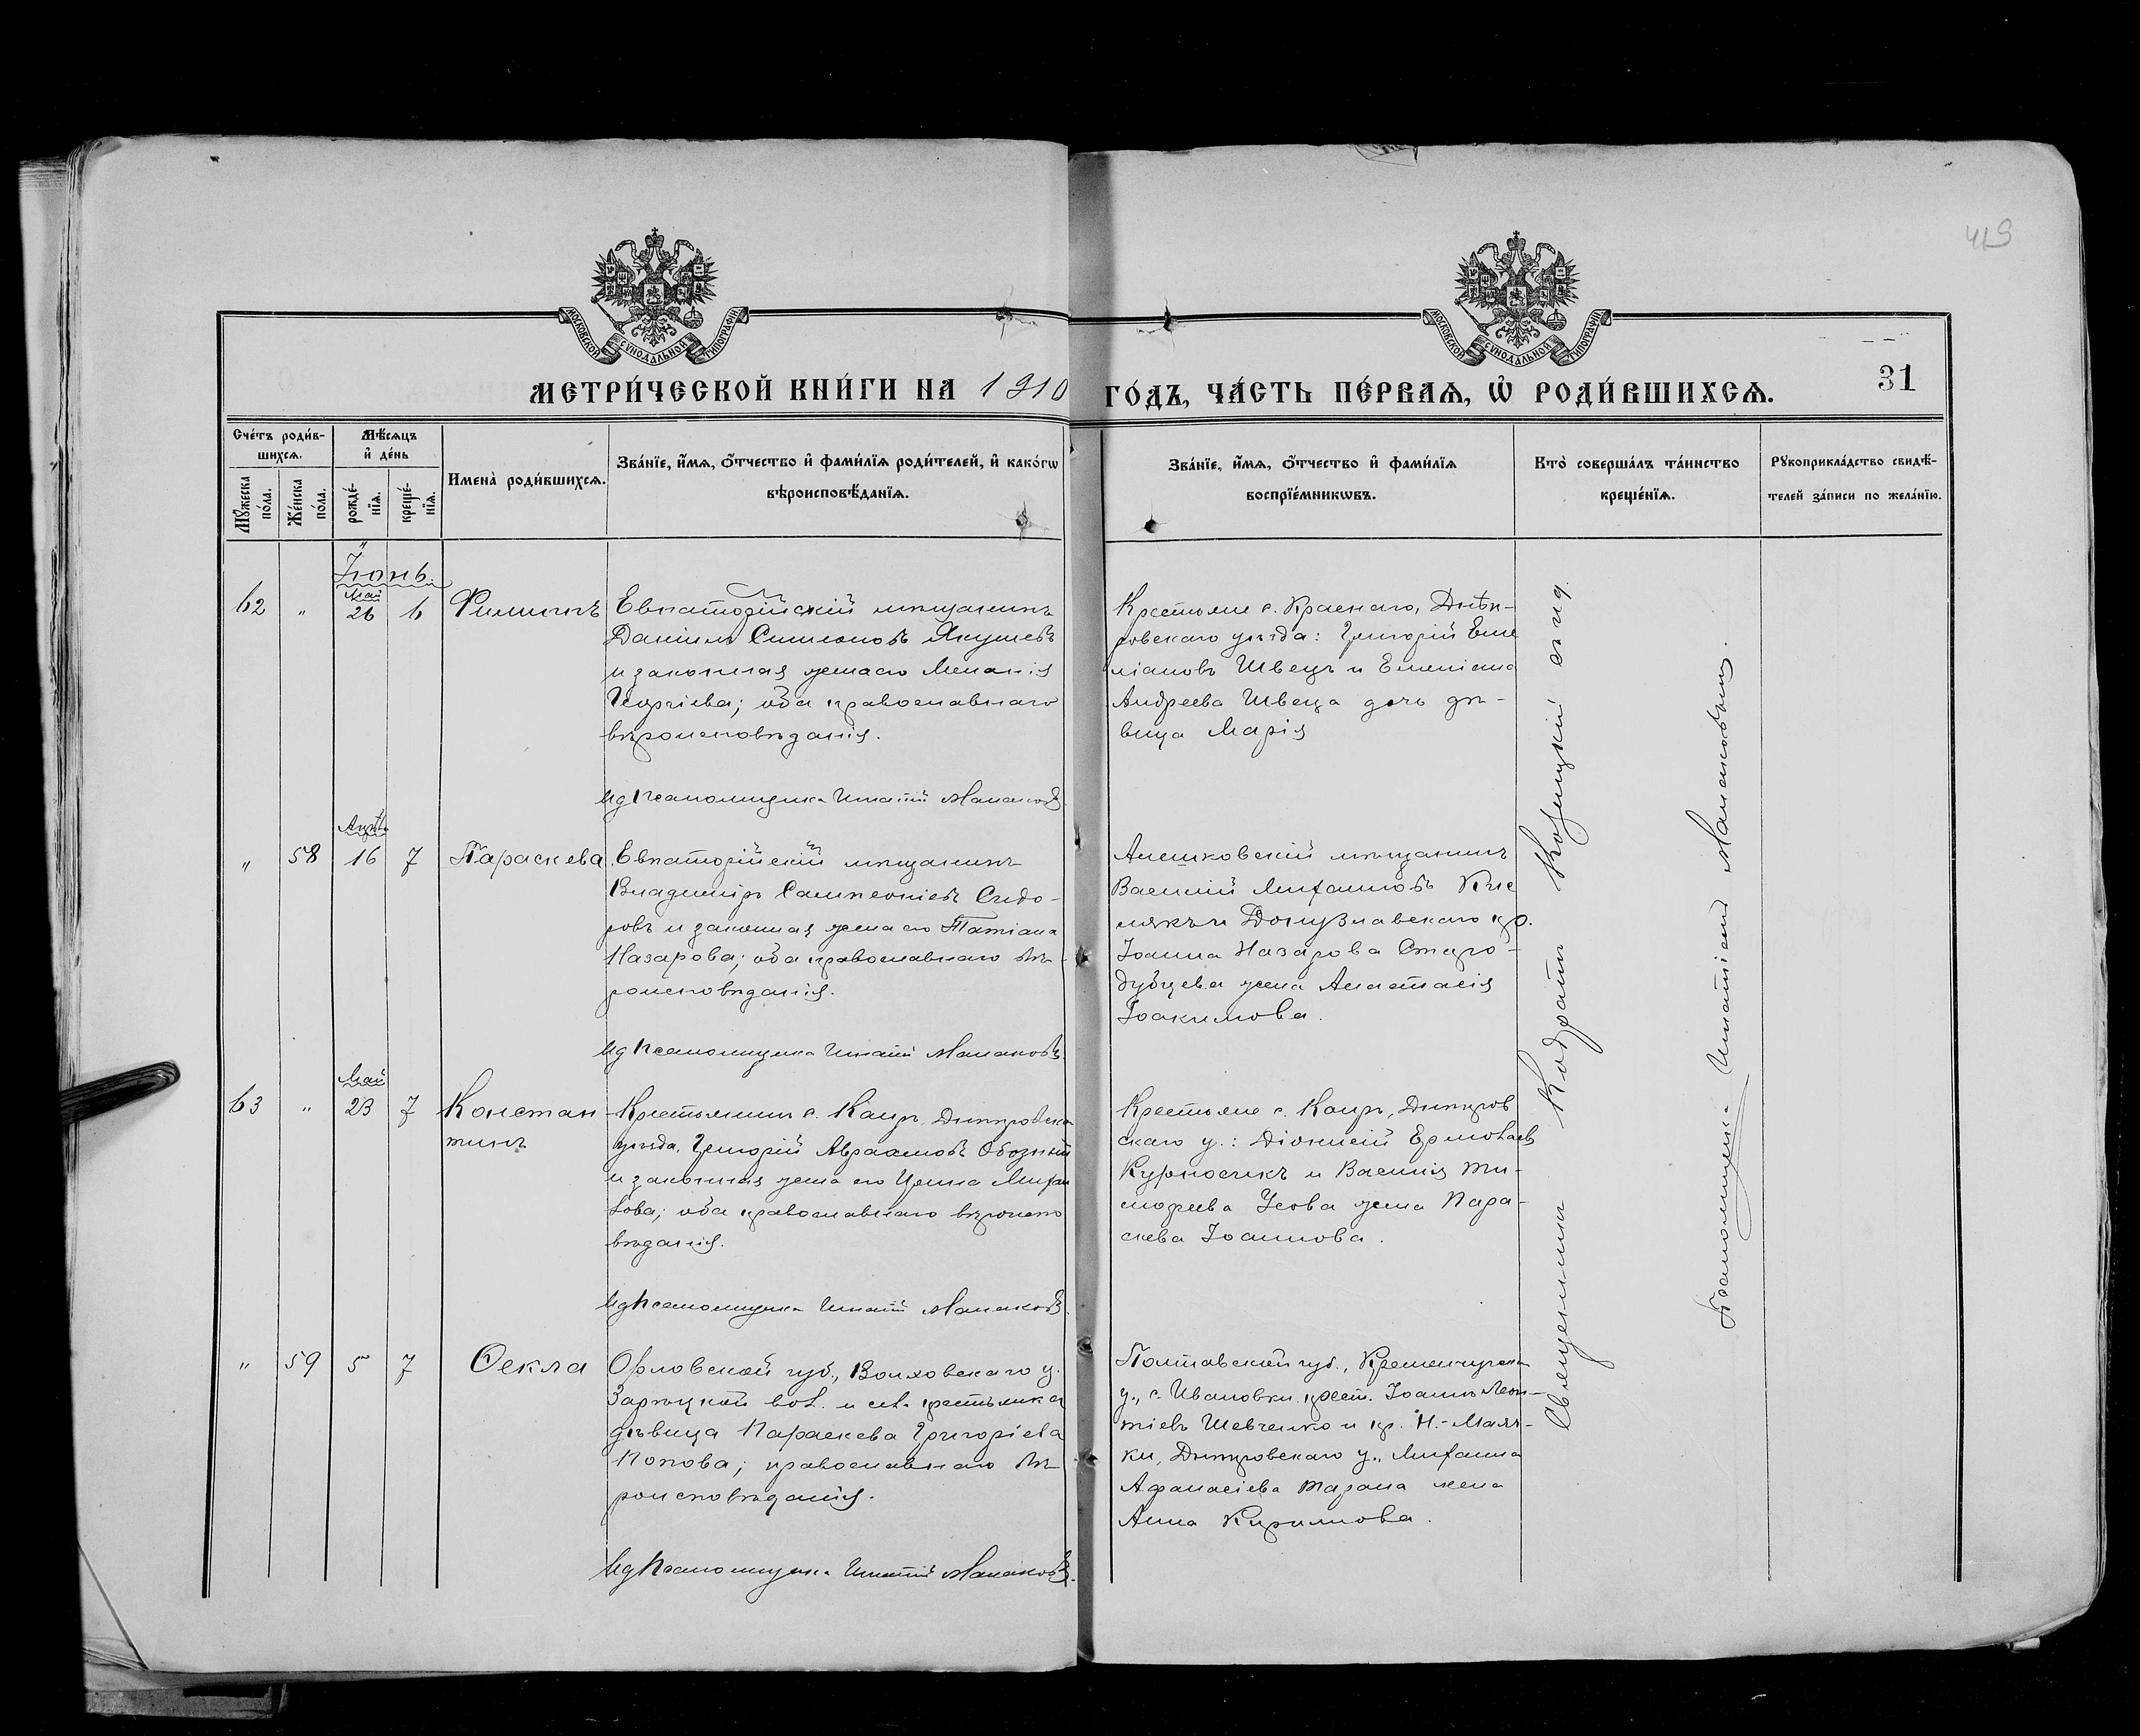 419
МОСКОВСКОЙ СѴНОДАЛЬНОЙ ТИПОГРАФІИ
МОСКОВСКОЙ СѴНОДАЛЬНОЙ ТИПОГРАФІИ
МЕТРИ́ЧЕСКОЙ КНИ́ГИ НА 1910 ГО́ДЪ, ЧА́СТЬ ПЕ́РВАѦ, Ѽ РОДИ́ВШИХСѦ.
31
Сче́тъ роди́в-
шихсѧ.
Мѣ́сѧцъ
и҆ де́нь
Мꙋ́жеска
по́ла.
Же́нска
по́ла.
рожде́-
нїѧ.
креще́-
нїѧ.
Имена̀ роди́вшихсѧ.
Зва́нїе, и҆́мѧ, ѻ҆́тчество и҆ фами́лїѧ роди́телей, и҆ како́гѡ
вѣроисповѣ́данїѧ.
Зва́нїе, и҆́мѧ, ѻ҆́тчество и҆ фами́лїѧ
воспрїе́мникѡвъ.
Кто̀ соверша́лъ та́инство
креще́нїѧ.
Рꙋкоприкла́дство свидѣ́-
телей за́писи по жела́нїю.
Іюнь.
Май
62 " 26 6 Филиппъ
Евпаторійскій мѣщанинъ
Даніилъ Симеоновъ Якушевъ
и законная жена его Меланія
Георгіева; оба православнаго
вѣроисповѣданія.
Ид Псаломщика Игнатій Манаковъ.
Крестьяне с. Краснаго, Днѣп-
ровскаго уѣзда: Григорій Еме
ліановъ Швецъ и Емеліана
Андреева Швеца дочь дѣ-
вица Марія
Апрѣль
" 58 16 7 Параскева
Евпаторійскій мѣщанинъ
Владиміръ Сампсоніевъ Сидо-
ровъ и законная жена его Татіана
Назарова; оба православнаго вѣ-
роисповѣданія.
Ид Псаломщика Игнатій Манаковъ.
Алешковскій мѣщанинъ
Василій Михаиловъ Кис
лякъ и Донузлавскаго кр.
Іоанна Назарова Старо-
дубцева жена Анастасія
Іоакимова.
Май
63 " 23 7 Констан
тинъ
Крестьянинъ с. Каиръ, Днѣпровскаго
уѣзда, Григорій Авраамовъ Обозный
и законная жена его Ирина Михаи
лова; оба православнаго вѣроиспо
вѣданія.
Ид Псаломщика Игнатій Манаковъ.
Крестьяне с. Каиръ, Днѣпров
скаго у.: Діонисій Ермолаевъ
Курносикъ и Василія Ти-
мофеева Усова жена Пара-
скева Іоаннова.
" 59 5 7 Ѳекла
Орловской губ., Волховскаго у.
Зарѣцкой вол. и сел. крестьянка
дѣвица Параскева Григоріева
Попова; православнаго вѣ
роисповѣданія.
Ид Псаломщика Игнатій Манаковъ.
Полтавской губ., Кременчугскаго
у., с. Ивановки крест. Іоаннъ Леон-
тіевъ Шевченко и кр. Н.-Маяч-
ки, Днѣпровскаго у., Михаила
Афанасіева Тарана жена
Анна Кириллова.
Священникъ Кодратъ
Псаломщикъ Игнатій Манаковъ